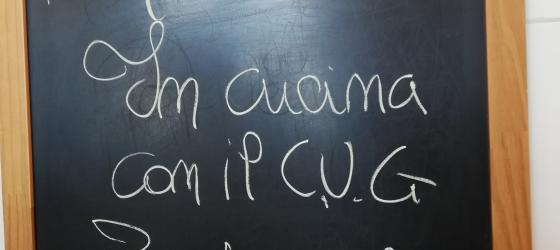 In cucina
con il C.V.G